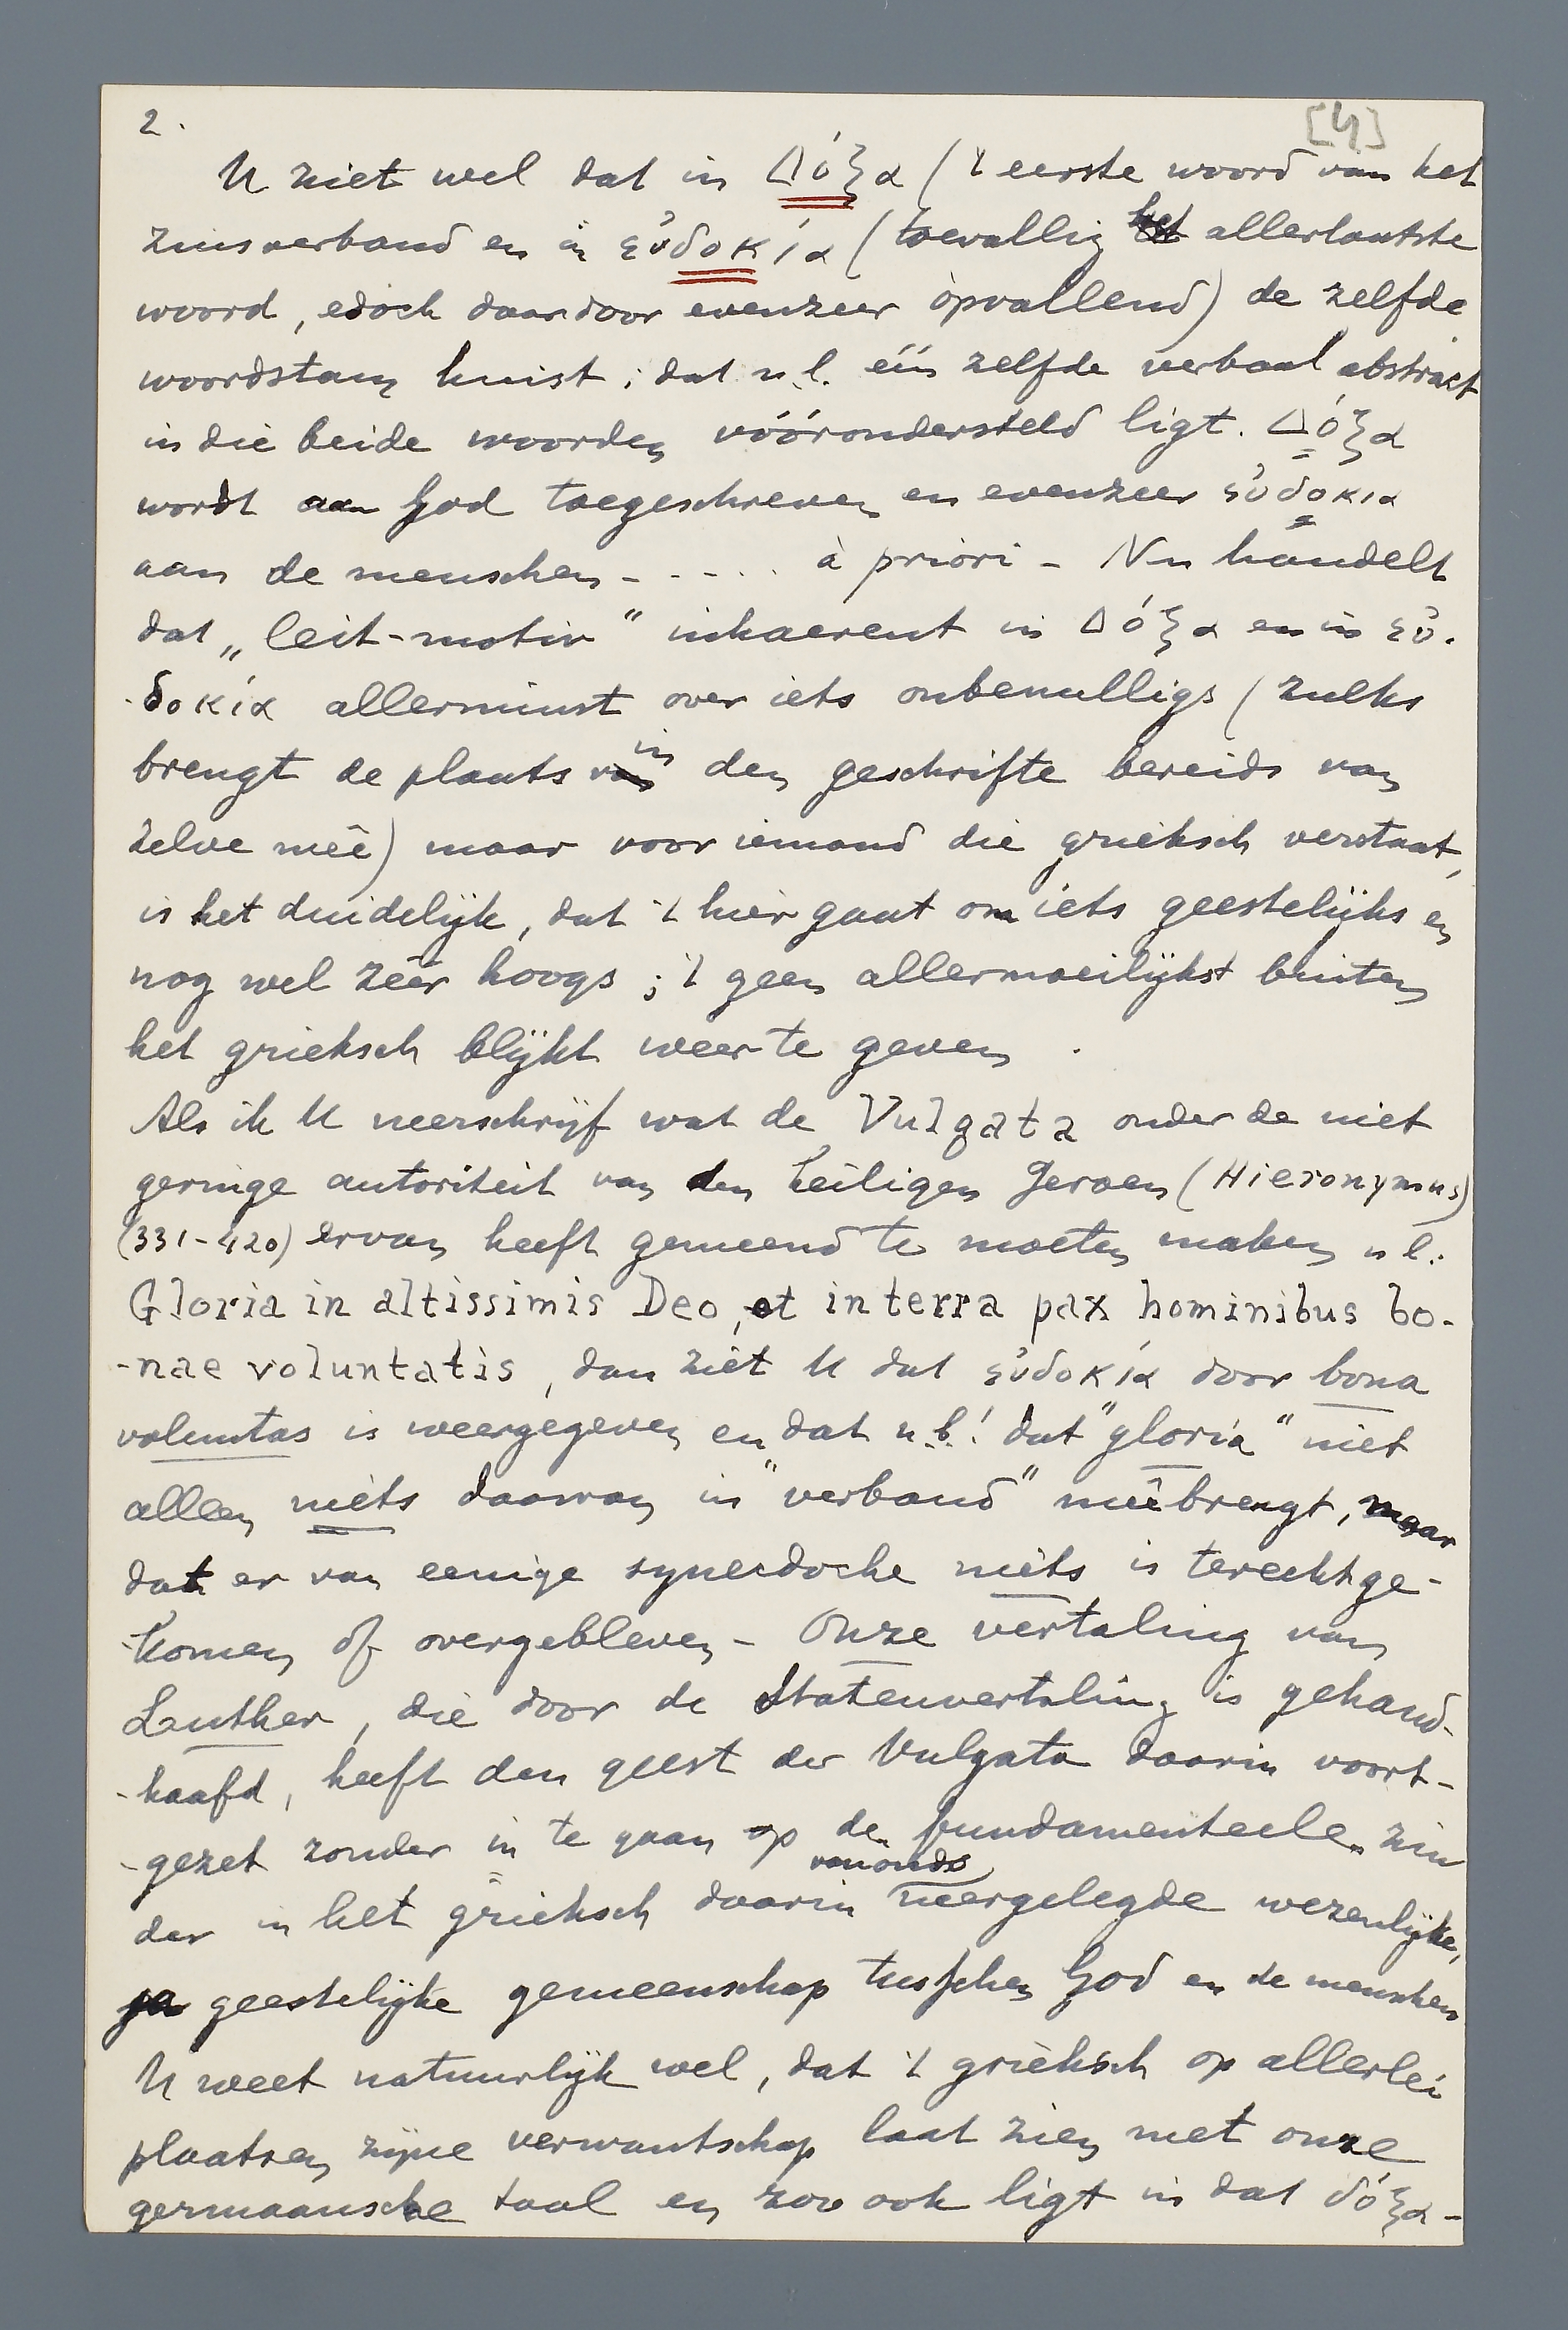 2.
[4]
U ziet wel dat in Δόξα ('t eerste woord van het
zinsverband en in εὐδοκία (toevallig het allerlaatste
woord, edoch daardoor evenzeer òpvallend) de zelfde
woordstam huist; dat n.l. één zelfde verbaal abstract
in die beide woorden vóórondersteld ligt. Δόξα
wordt aan God toegeschreven en evenzeer εὐδοκια
aan de menschen - - - - . . à priori - Nu handelt
dat „leit-motiv" inhaerent in Δόξα en in εὐ-
-δοκία allerminst over iets onbenulligs (zulks
brengt de plaats in den geschrifte bereids van
zelve meê) maar voor iemand die grieksch verstaat,
is het duidelijk, dat 't hier gaat om iets geestelijks en
nog wel zéér hoogs; 't geen allermoeilijkst buiten
het grieksch blijkt weer te geven .
Als ik U neerschrijf wat de Vulgata onder de niet
geringe autoriteit van den heiligen Jeroen (Hieronymus)
(331-420) ervan heeft gemeend te moeten maken n l.:
Gloria in altissimis Deo, et in terra pax hominibus bo-
-nae voluntatis, dan ziet U dat εὐδοκία door bona
voluntas is weergegeven en dat n.b.! dat "gloria" niet
alleen niets daarvan in "verband" meêbrengt, maar
dat er van eenige synecdoche niets is terechtge-
-komen of overgebleven - Onze vertaling van
Luther, die door de Statenvertaling is gehand-
-haafd, heeft den geest der Vulgata daarin voort-
-gezet zonder in te gaan op den fundamenteelen zin
der in het grieksch daarin vanouds neergelegde wezenlijke,
ja geestelijke gemeenschap tusschen God en de menschen
U weet natuurlijk wel, dat 't grieksch op allerlei
plaatsen zijne verwantschap laat zien met onze
germaansche taal en zoo ook ligt in dat δόξα -